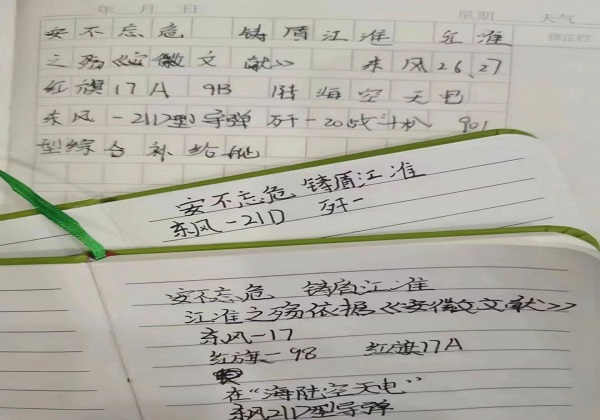 年 月 日 星期 天气
安不忘危 铸盾江淮 江淮
之殇《安徽文献》 东风26,27
红旗17A 9B 陆海空天电
东风-21D型导弹 歼-20战斗机 901
型综合补给船
安不忘危 铸盾江淮
东风-21D 歼-
安不忘危 铸盾江淮
江淮之殇依据《安徽文献》
东风-17
红旗-9B 红旗17A
在“海陆空天电”
东风21D型导弹